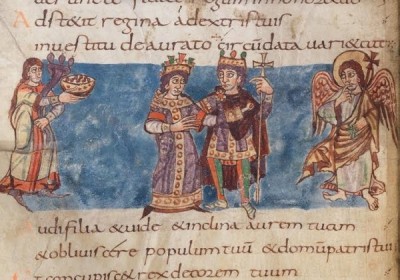 Adst&it regina adextristuis
inuestitu deaurato circūdata uari&
Audifilia &uide &inclina aurem tuam
&obliuiscere populum tuū &domū patristui
&concupisc& rex decorem tuum